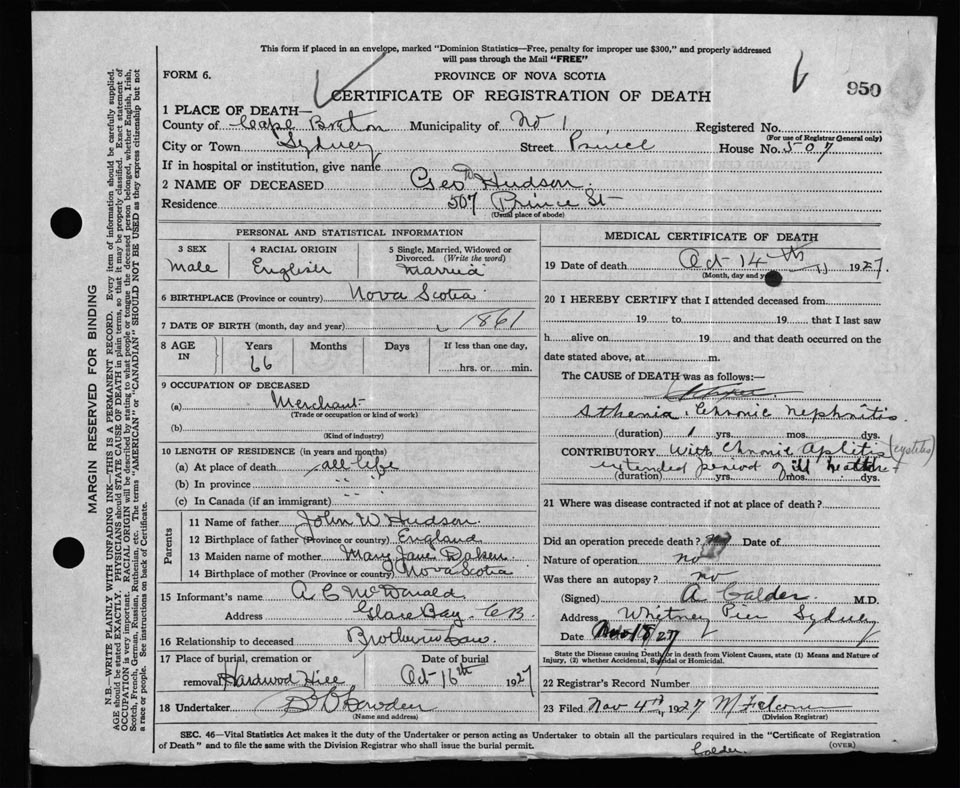 This form if placed in an envelope, marked "Dominion Statistics—Free, penalty for improper use $300," and properly addressed
will pass through the Mail "FREE"
FORM 6.
PROVINCE OF NOVA SCOTIA
950
CERTIFICATE OF REGISTRATION OF DEATH
1 PLACE OF DEATH—
County of Cape Breton Municipality of No 1 Registered No.
(For use of Registrar General only)
City or Town Sydney Street Prince House No. 507
If in hospital or institution, give name
2 NAME OF DECEASED Geo Hudson
Residence 507 Prince St
(Usual place of abode)
PERSONAL AND STATISTICAL INFORMATION
3 SEX 4 RACIAL ORIGIN 5 Single, Married, Widowed or
Divorced. (Write the word)
Male English Married
6 BIRTHPLACE (Province or country) Nova Scotia
7 DATE OF BIRTH (month, day and year) 1861
8 AGE IN Years Months Days If less than one day,
66 hrs. or min.
9 OCCUPATION OF DECEASED
(a) Merchant
(Trade or occupation or kind of work)
(b)
(Kind of industry)
10 LENGTH OF RESIDENCE (in years and months)
(a) At place of death all life
(b) In province " "
(c) In Canada (if an immigrant) " "
Parents
11 Name of father John W Hudson
12 Birthplace of father (Province or country) England
13 Maiden name of mother Mary Jane
14 Birthplace of mother (Province or country) Nova Scotia
15 Informant's name A C McDonald
Address Glace Bay CB
16 Relationship to deceased Brother in law
17 Place of burial, cremation or Date of burial
removal Hardwood Hill Oct 16th 1927
18 Undertaker
(Name and address)
MEDICAL CERTIFICATE OF DEATH
19 Date of death Oct 14th 1927.
(Month, day and year)
20 I HEREBY CERTIFY that I attended deceased from
19 to 19 that I last saw
h alive on 19 and that death occurred on the
date stated above, at m.
The CAUSE of DEATH was as follows:—
Asthenia. Chronic Nephritis
(duration) 1 yrs. mos. dys.
CONTRIBUTORY With Chronic (cystitis)
extended period of ill health
(duration) yrs. mos. dys.
21 Where was disease contracted if not at place of death?
Did an operation precede death? no Date of
Nature of operation no
Was there an autopsy? no
(Signed) A Calder M.D.
Address Whitney Pier Sydney
Date Nov 15 27
State the Disease causing Death, or in death from Violent Causes, state (1) Means and Nature of
Injury, (2) whether Accidental, Suicidal or Homicidal.
22 Registrar's Record Number
23 Filed Nov 4th 1927 M Falconer
(Division Registrar)
SEC. 46—Vital Statistics Act makes it the duty of the Undertaker or person acting as Undertaker to obtain all the particulars required in the "Certificate of Registration
of Death" and to file the same with the Division Registrar who shall issue the burial permit.
Calder
(OVER)
MARGIN RESERVED FOR BINDING
N.B.—WRITE PLAINLY WITH UNFADING INK—THIS IS A PERMANENT RECORD. Every item of information should be carefully supplied.
AGE should be stated EXACTLY. PHYSICIANS should STATE CAUSE OF DEATH in plain terms, so that it may be properly classified. Exact statement of
OCCUPATION is very important. RACIAL ORIGIN will be described by stating to what people or tongue the deceased person belonged, whether English, Irish,
Scotch, French, German, Russian, Ruthenian, etc. The terms "AMERICAN" or "CANADIAN" SHOULD NOT BE USED as they express citizenship but not
a race or people. See instructions on back of Certificate.